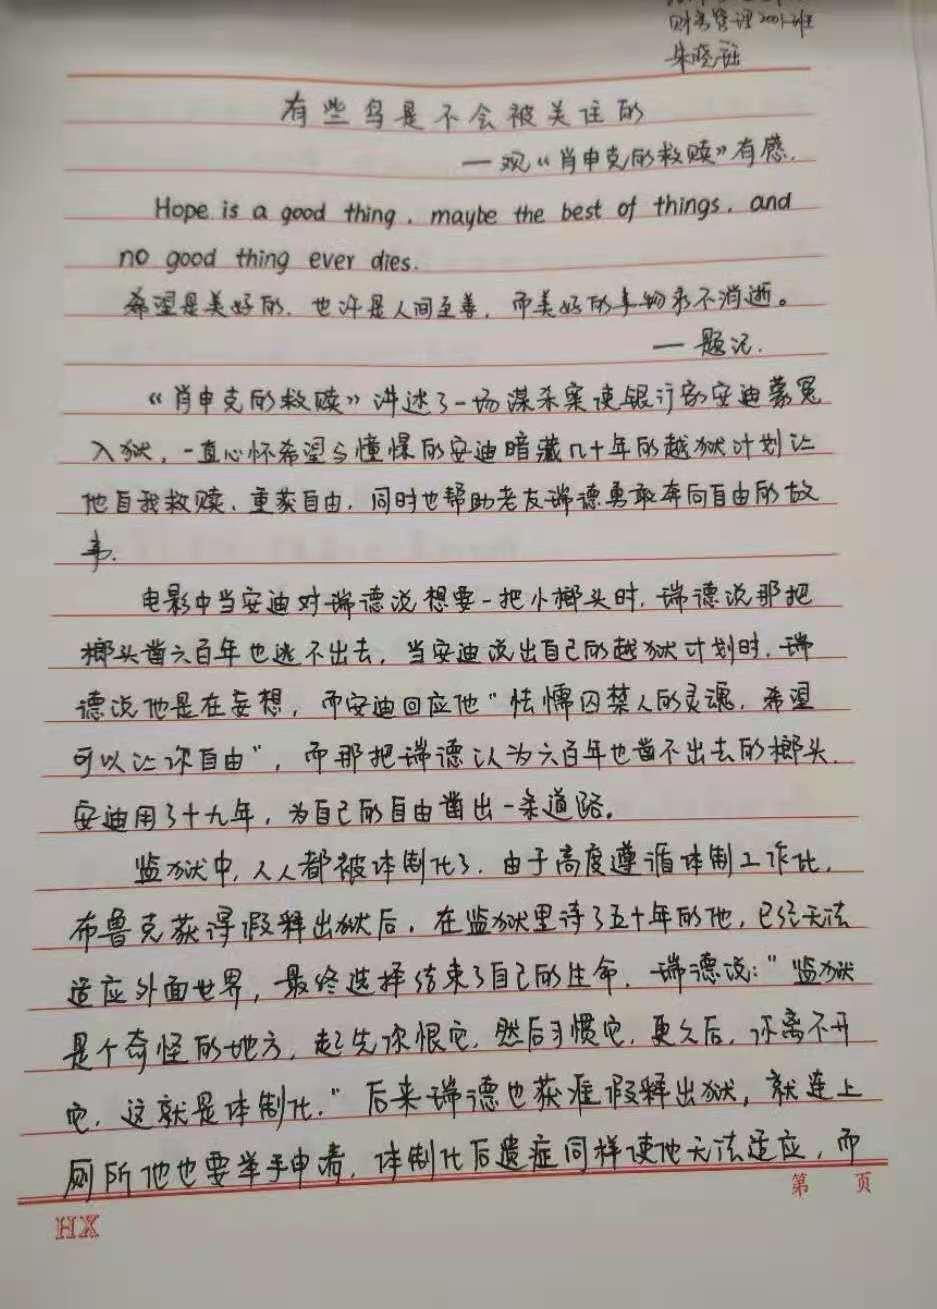 财务管理2001班
朱晓
有些鸟是不会被关住的
—观“肖申克的救赎”有感.
Hope is a good thing, maybe the best of things, and
no good thing ever dies.
希望是美好的, 也许是人间至善, 而美好的事物永不消逝。
— 题记.
《肖申克的救赎》讲述了一场谋杀案使银行家安迪蒙冤
入狱, 一直心怀希望与憧憬的安迪暗藏几十年的越狱计划让
他自我救赎、重获自由, 同时也帮助老友瑞德勇敢奔向自由的故
事.
电影中当安迪对瑞德说想要一把小榔头时, 瑞德说那把
榔头凿六百年也逃不出去, 当安迪说出自己的越狱计划时, 瑞
德说他是在妄想, 而安迪回应他“怯懦囚禁人的灵魂, 希望
可以让你自由”, 而那把瑞德认为六百年也凿不出去的榔头,
安迪用了十九年, 为自己的自由凿出一条道路。
监狱中, 人人都被体制化了, 由于高度遵循体制工作化,
布鲁克获得假释出狱后, 在监狱里待了五十年的他, 已经无法
适应外面世界, 最终选择结束了自己的生命. 瑞德说:“监狱
是个奇怪的地方, 起先你恨它, 然后习惯它, 更久后, 你离不开
它, 这就是体制化.”后来瑞德也获准假释出狱, 就连上
厕所他也要举手申请, 体制化后遗症同样使他无法适应, 而
第 页
HX